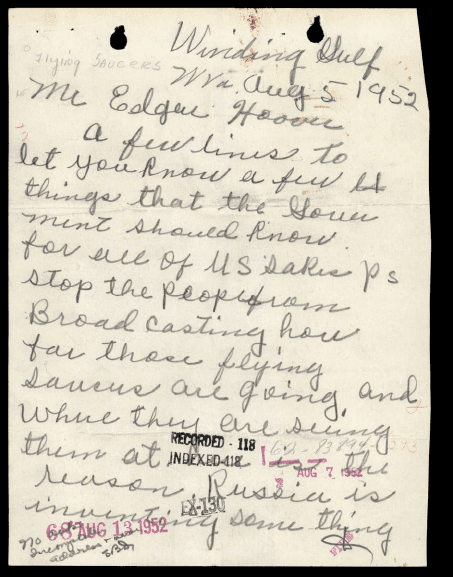 Winding Gulf
Flying Saucers
W Va, Aug 5 1952
Mr Edgar Hoover
a few lines to
let you know a few
things that the Gover
ment should know
for all of US Sakes Ps
stop the people from
Broad casting how
far those flying
saucers are going and
Where they are seeing
them at the
RECORDED - 118
62-83894-293
INDEXED-118
AUG 7 1952
reason Russia is
EX-130
inventing some thing
68 AUG 13 1952
No
address